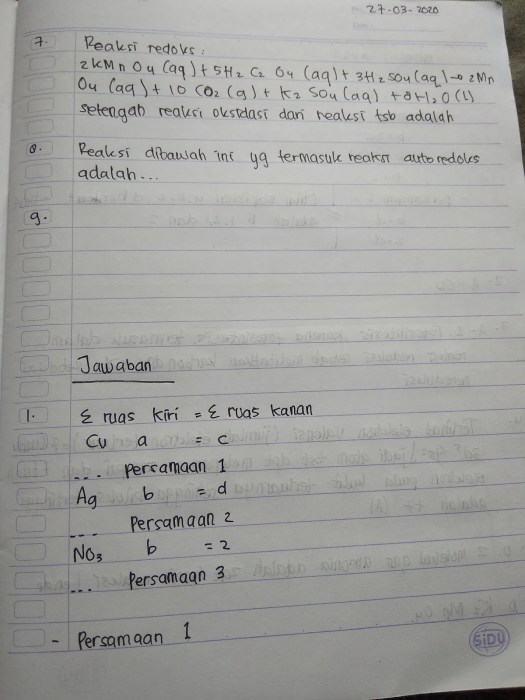 27-03-2020
7. Reaksi redoks:
2kMnO4 (aq) + 5H2C2O4 (aq) + 3H2SO4 (aq) → 2Mn
O4 (aq) + 10 CO2 (g) + K2SO4 (aq) + 8H2O (l)
setengah reaksi oksidasi dari reaksi tsb adalah
8. Reaksi dibawah ini yg termasuk reaksi autoredoks
adalah...
9.
Jawaban
1. Σ ruas kiri = Σ ruas kanan
Cu a = c
... persamaan 1
Ag b = d
... Persamaan 2
NO3 b = 2
... Persamaan 3
- Persamaan 1
SiDU